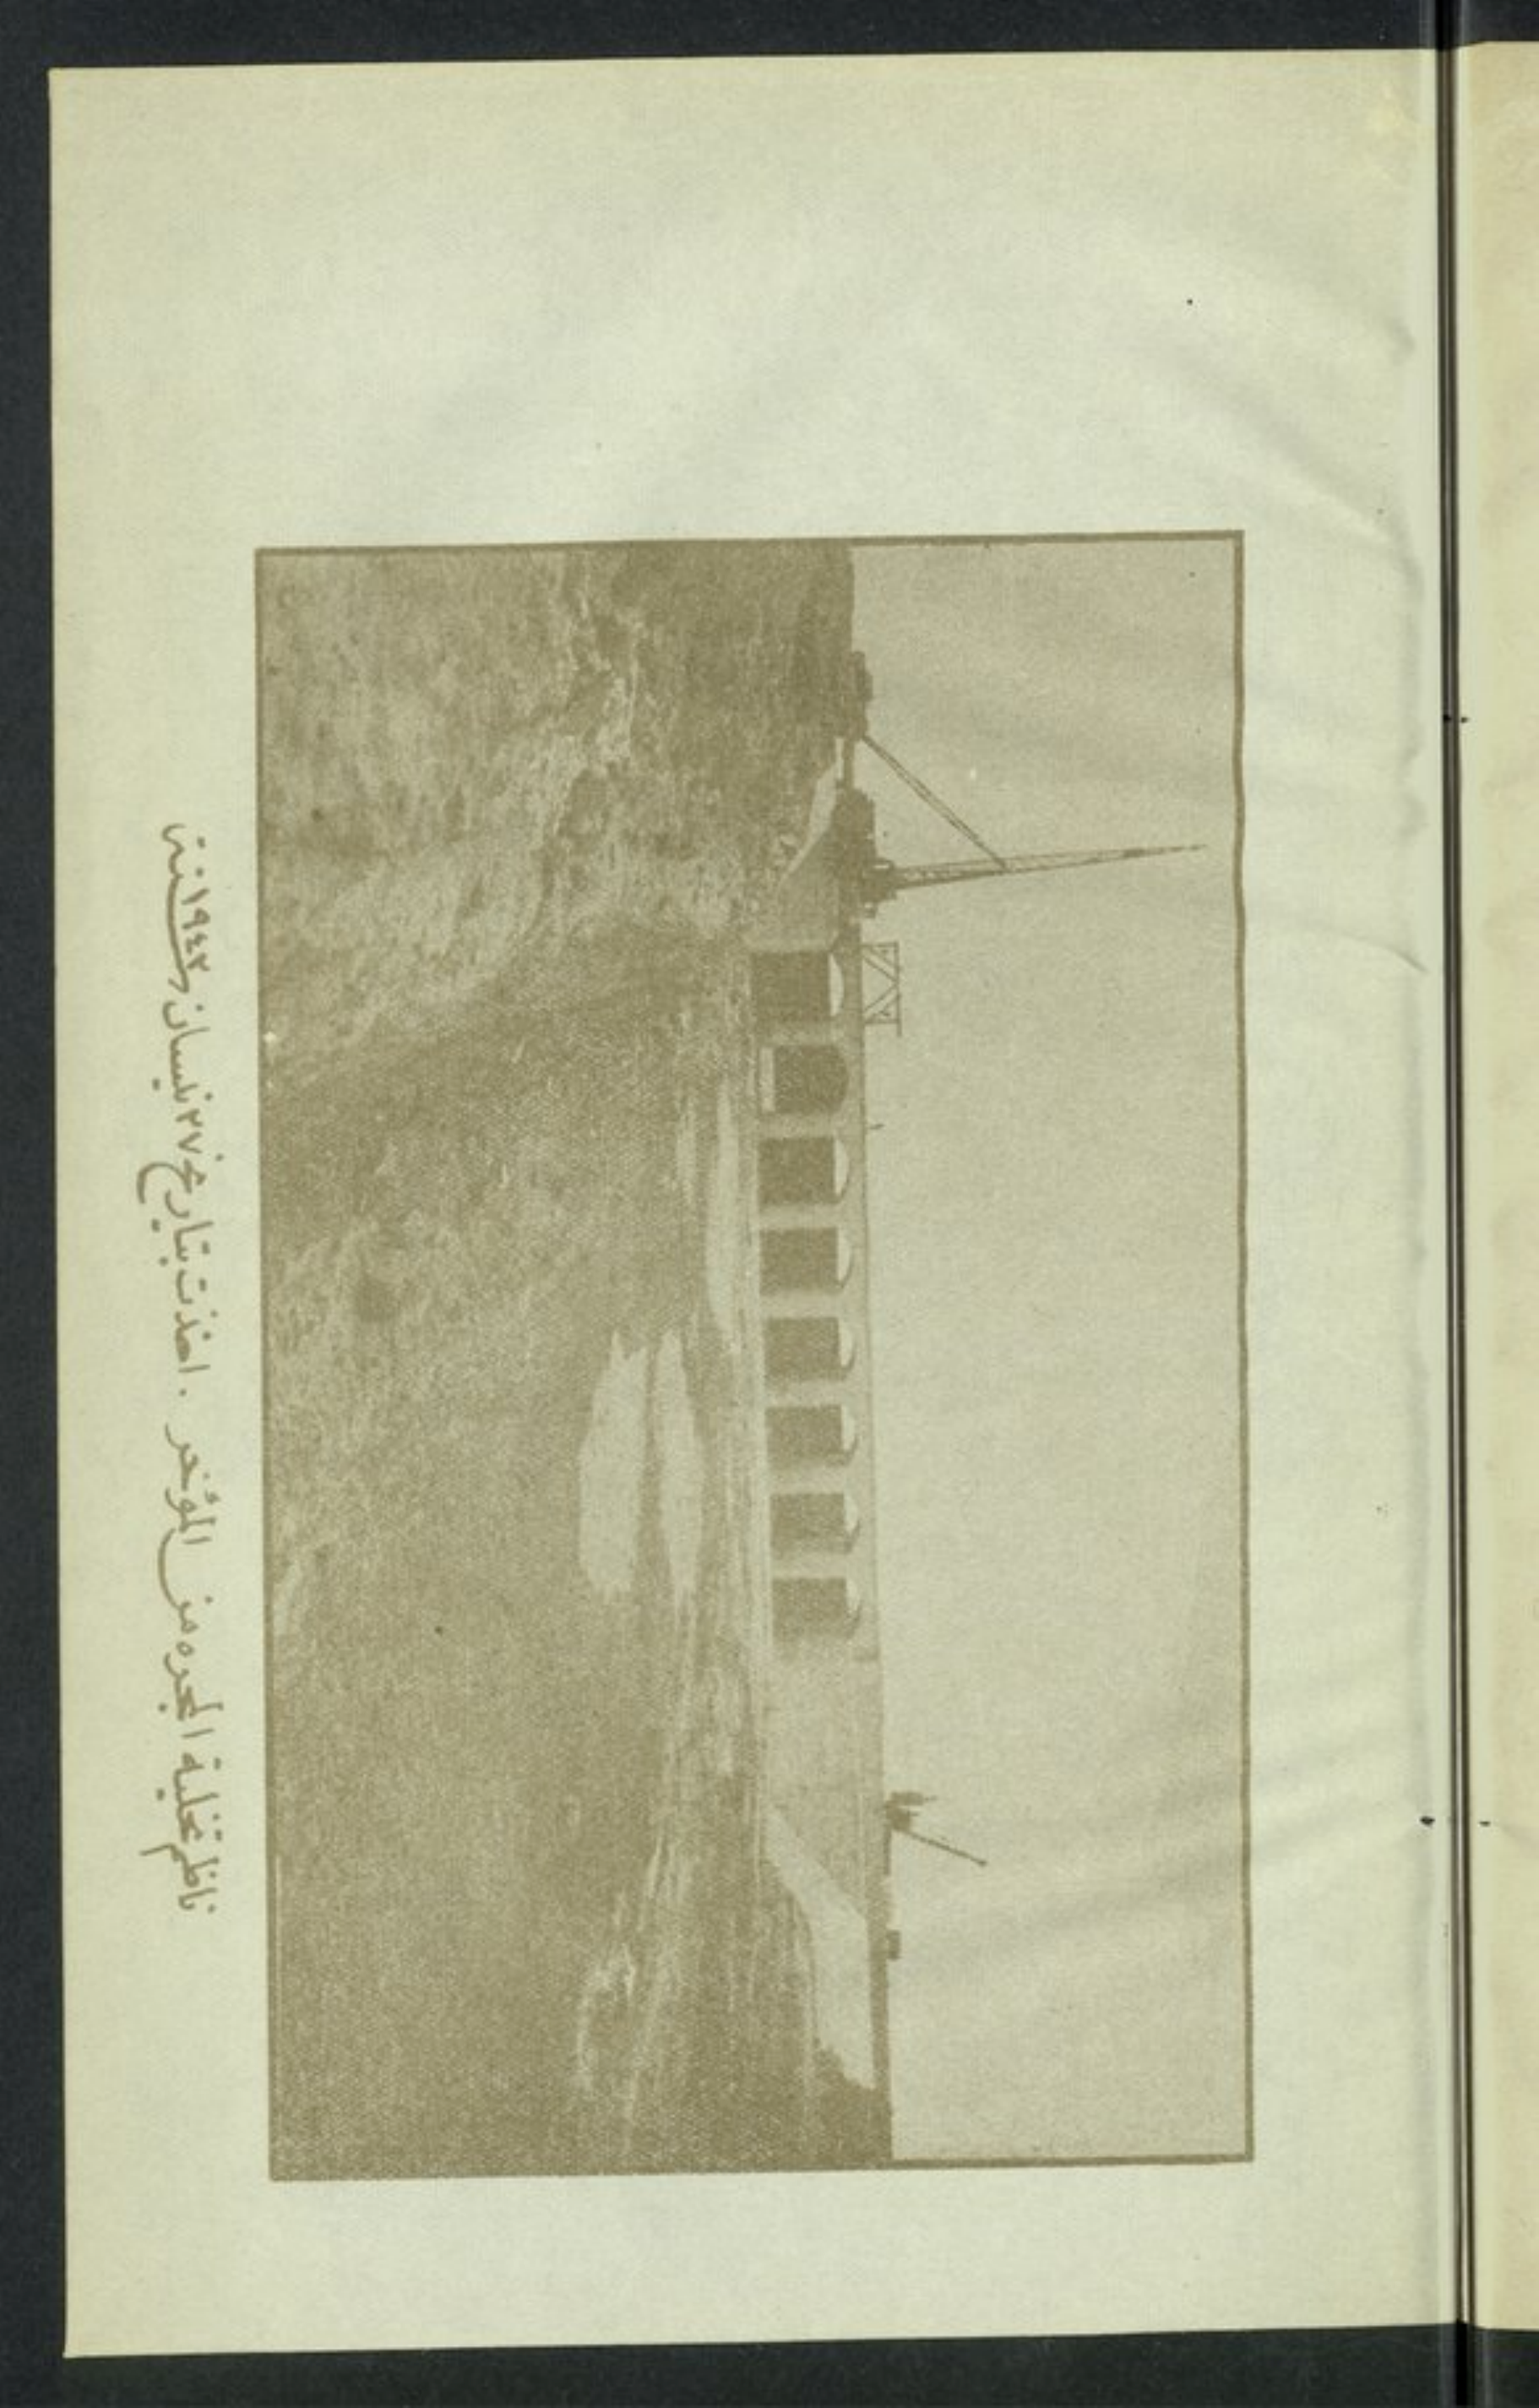 ناظم تخلية المجره من المؤخر . اخذت بتاريخ ٢٧ نيسان ١٩٤٣